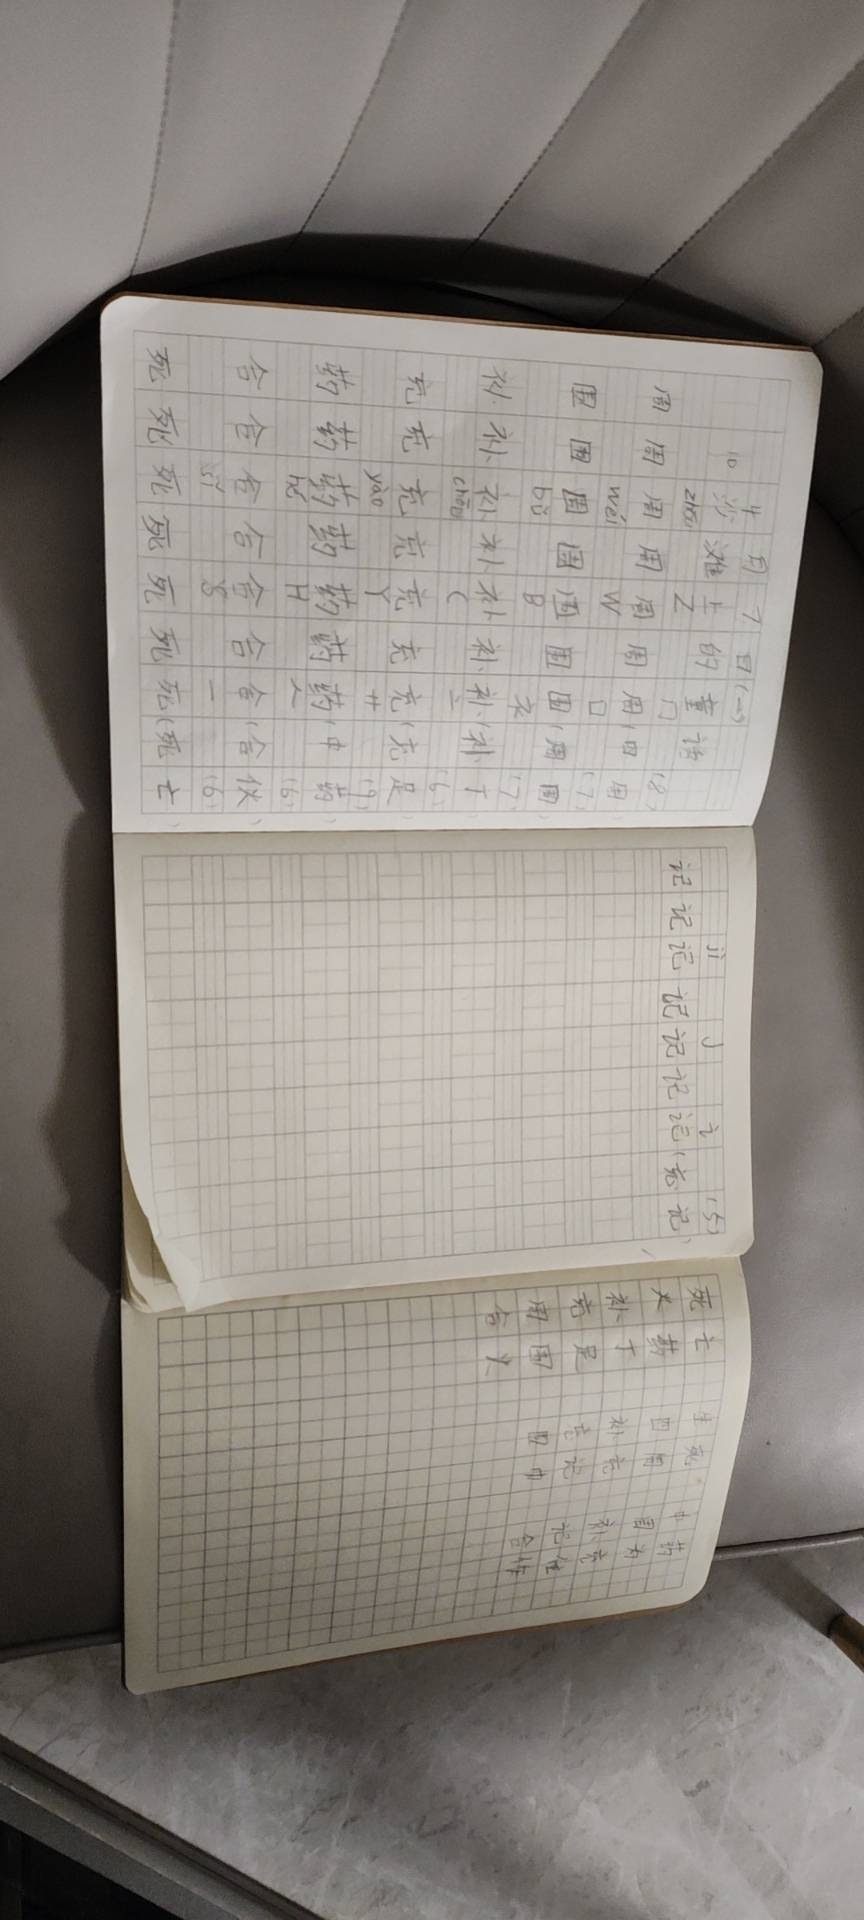 10月7日(一)
4 沙滩上的童话
zhōu Z 冂 (8)
周周周周周周周(四周)
wéi W 囗 (7)
围围围围围围围(周围)
bǔ B 衤 (7)
补补补补补补补(补丁)
chōng C 亠 (6)
充充充充充充充(充足)
yào Y 艹 (9)
药药药药药药药(中药)
hé H 人 (6)
合合合合合合合(合伙)
sǐ S 一 (6)
死死死死死死死(死亡)
jì J 讠 (5)
记记记记记记记(忘记)
死亡 生死 中药
火药 四周
补丁 补充 补充
充足 忘记 记住
周围 合作
合火